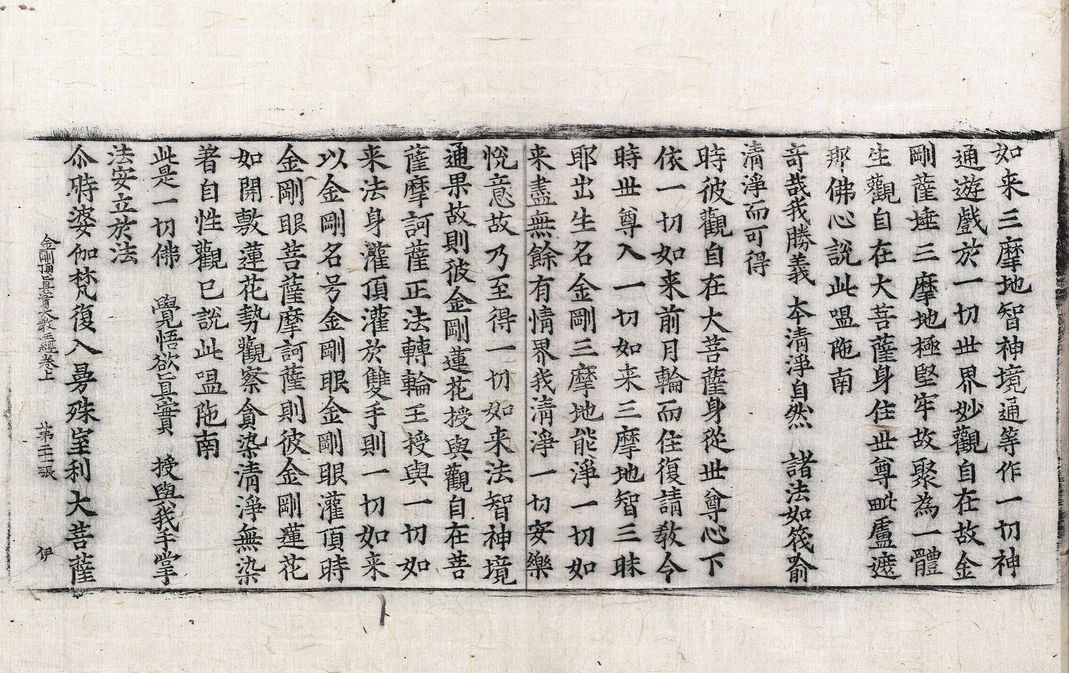 如来三摩地智神境通等作一切神
通遊戲於一切世界妙觀自在故金
剛薩埵三摩地極堅牢故聚為一體
生觀自在大菩薩身住世尊毗盧遮
那佛心說此嗢陁南
奇哉我勝義　本清淨自然　諸法如筏喻
清淨而可得
時彼觀自在大菩薩身從世尊心下
依一切如来前月輪而住復請教令
時世尊入一切如来三摩地智三昧
耶出生名金剛三摩地能淨一切如
来盡無餘有情界我清淨一切安樂
悅意故乃至得一切如来法智神境
通果故則彼金剛蓮花授與觀自在菩
薩摩訶薩正法轉輪王授與一切如
来法身灌頂灌於雙手則一切如来
以金剛名号金剛眼金剛眼灌頂時
金剛眼菩薩摩訶薩則彼金剛蓮花
如開敷蓮花勢觀察貪染清淨無染
著自性觀已說此嗢陁南
此是一切佛　覺悟欲真實　授與我手掌
法安立於法
尒時婆伽梵復入曼殊室利大菩薩
金剛頂真實大教王經卷上　第二十一張　伊